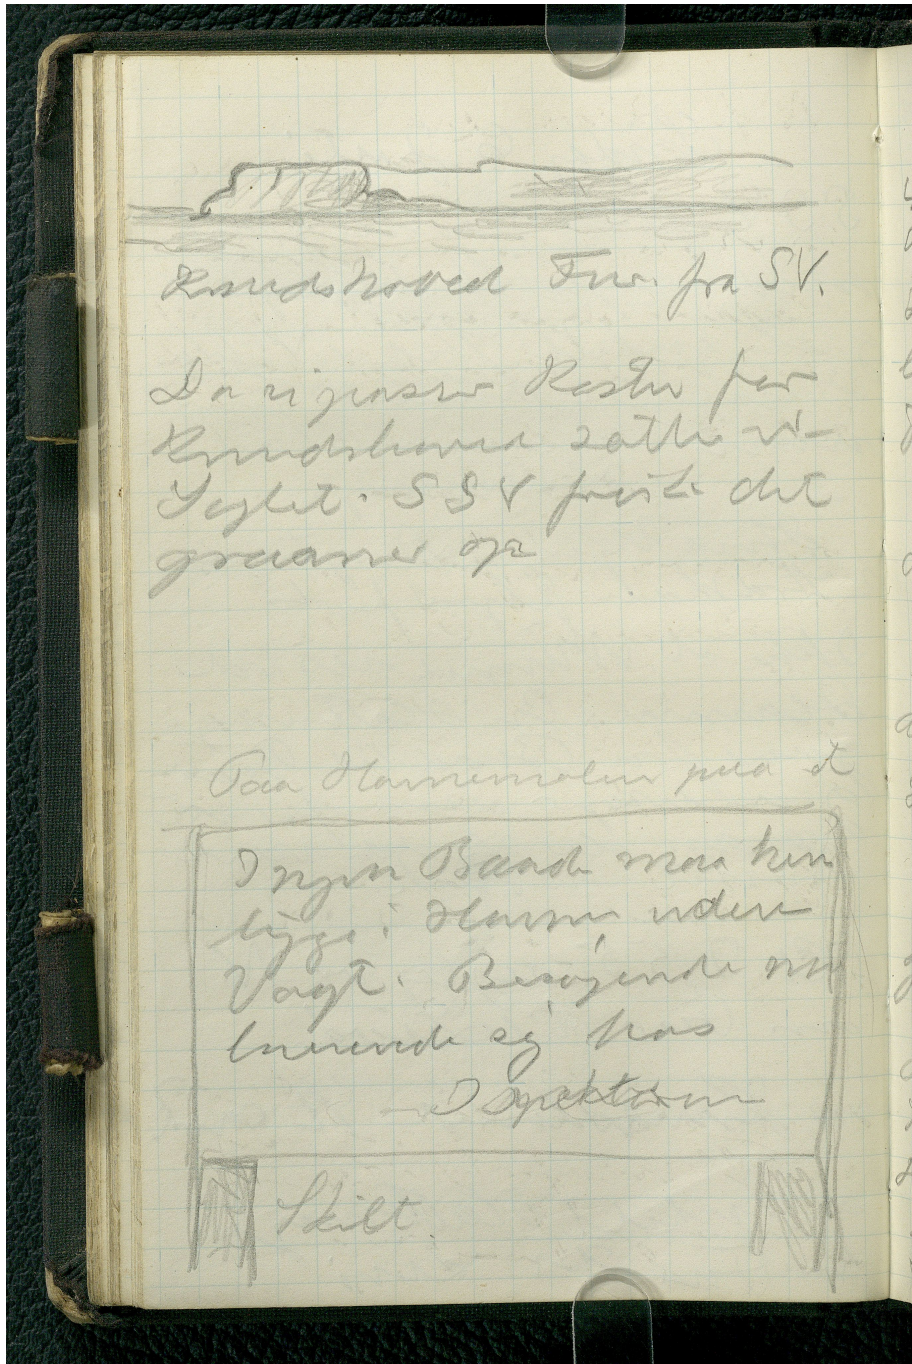 Knudshoved Fur. fra SV.
Da vi passer Kosten for
Knudshoved satte vi
Sejlet. SSV friste det
graaner op
Paa Havnemolen paa et
Ingen Baade maa hen
ligge i Havnen uden
Vagt. Besøgende
sig hos
Ispektøren
Skilt